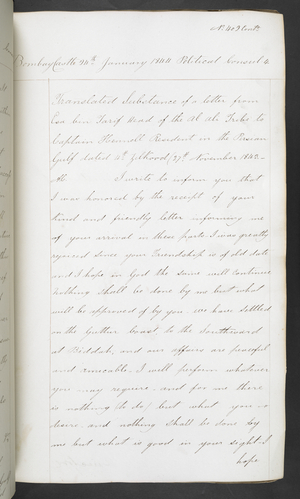 Bombay Castle 24th January 1844 Political Consul
Translated Substance of a letter from
Esa bin Tarif Head of the Al Ali Tribe to
Captain Hennell Resident in the Persian
Gulf dated November 1843
I write to inform you that
I was honored by the receipt of your
kind and friendly letter informing me
of your arrival in these parts I was greatly
rejoiced since your Friendship is of old date
and I hope in God the same will continue
nothing shall be done by me but what
will be approved of by you. We have settled
on the Guttur Coast, to the Southward
at Biddah, and our affairs are peaceful
and amicable. I will perform whatever
you may require, and for me there
is nothing (to do) but what you
desire and nothing shall be done by
me but what is good in your sight I
hope